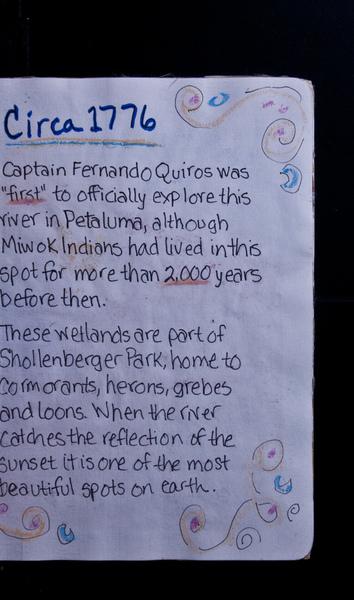 Circa 1776
Captain Fernando Quiros was
"first" to officially explore this
river in Petaluma, although
Miwok Indians had lived in this
spot for more than 2,000 years
before then.
These wetlands are part of
Shollenberger Park, home to
cormorants, herons, grebes
and loons. When the river
catches the reflection of the
sunset it is one of the most
beautiful spots on earth.